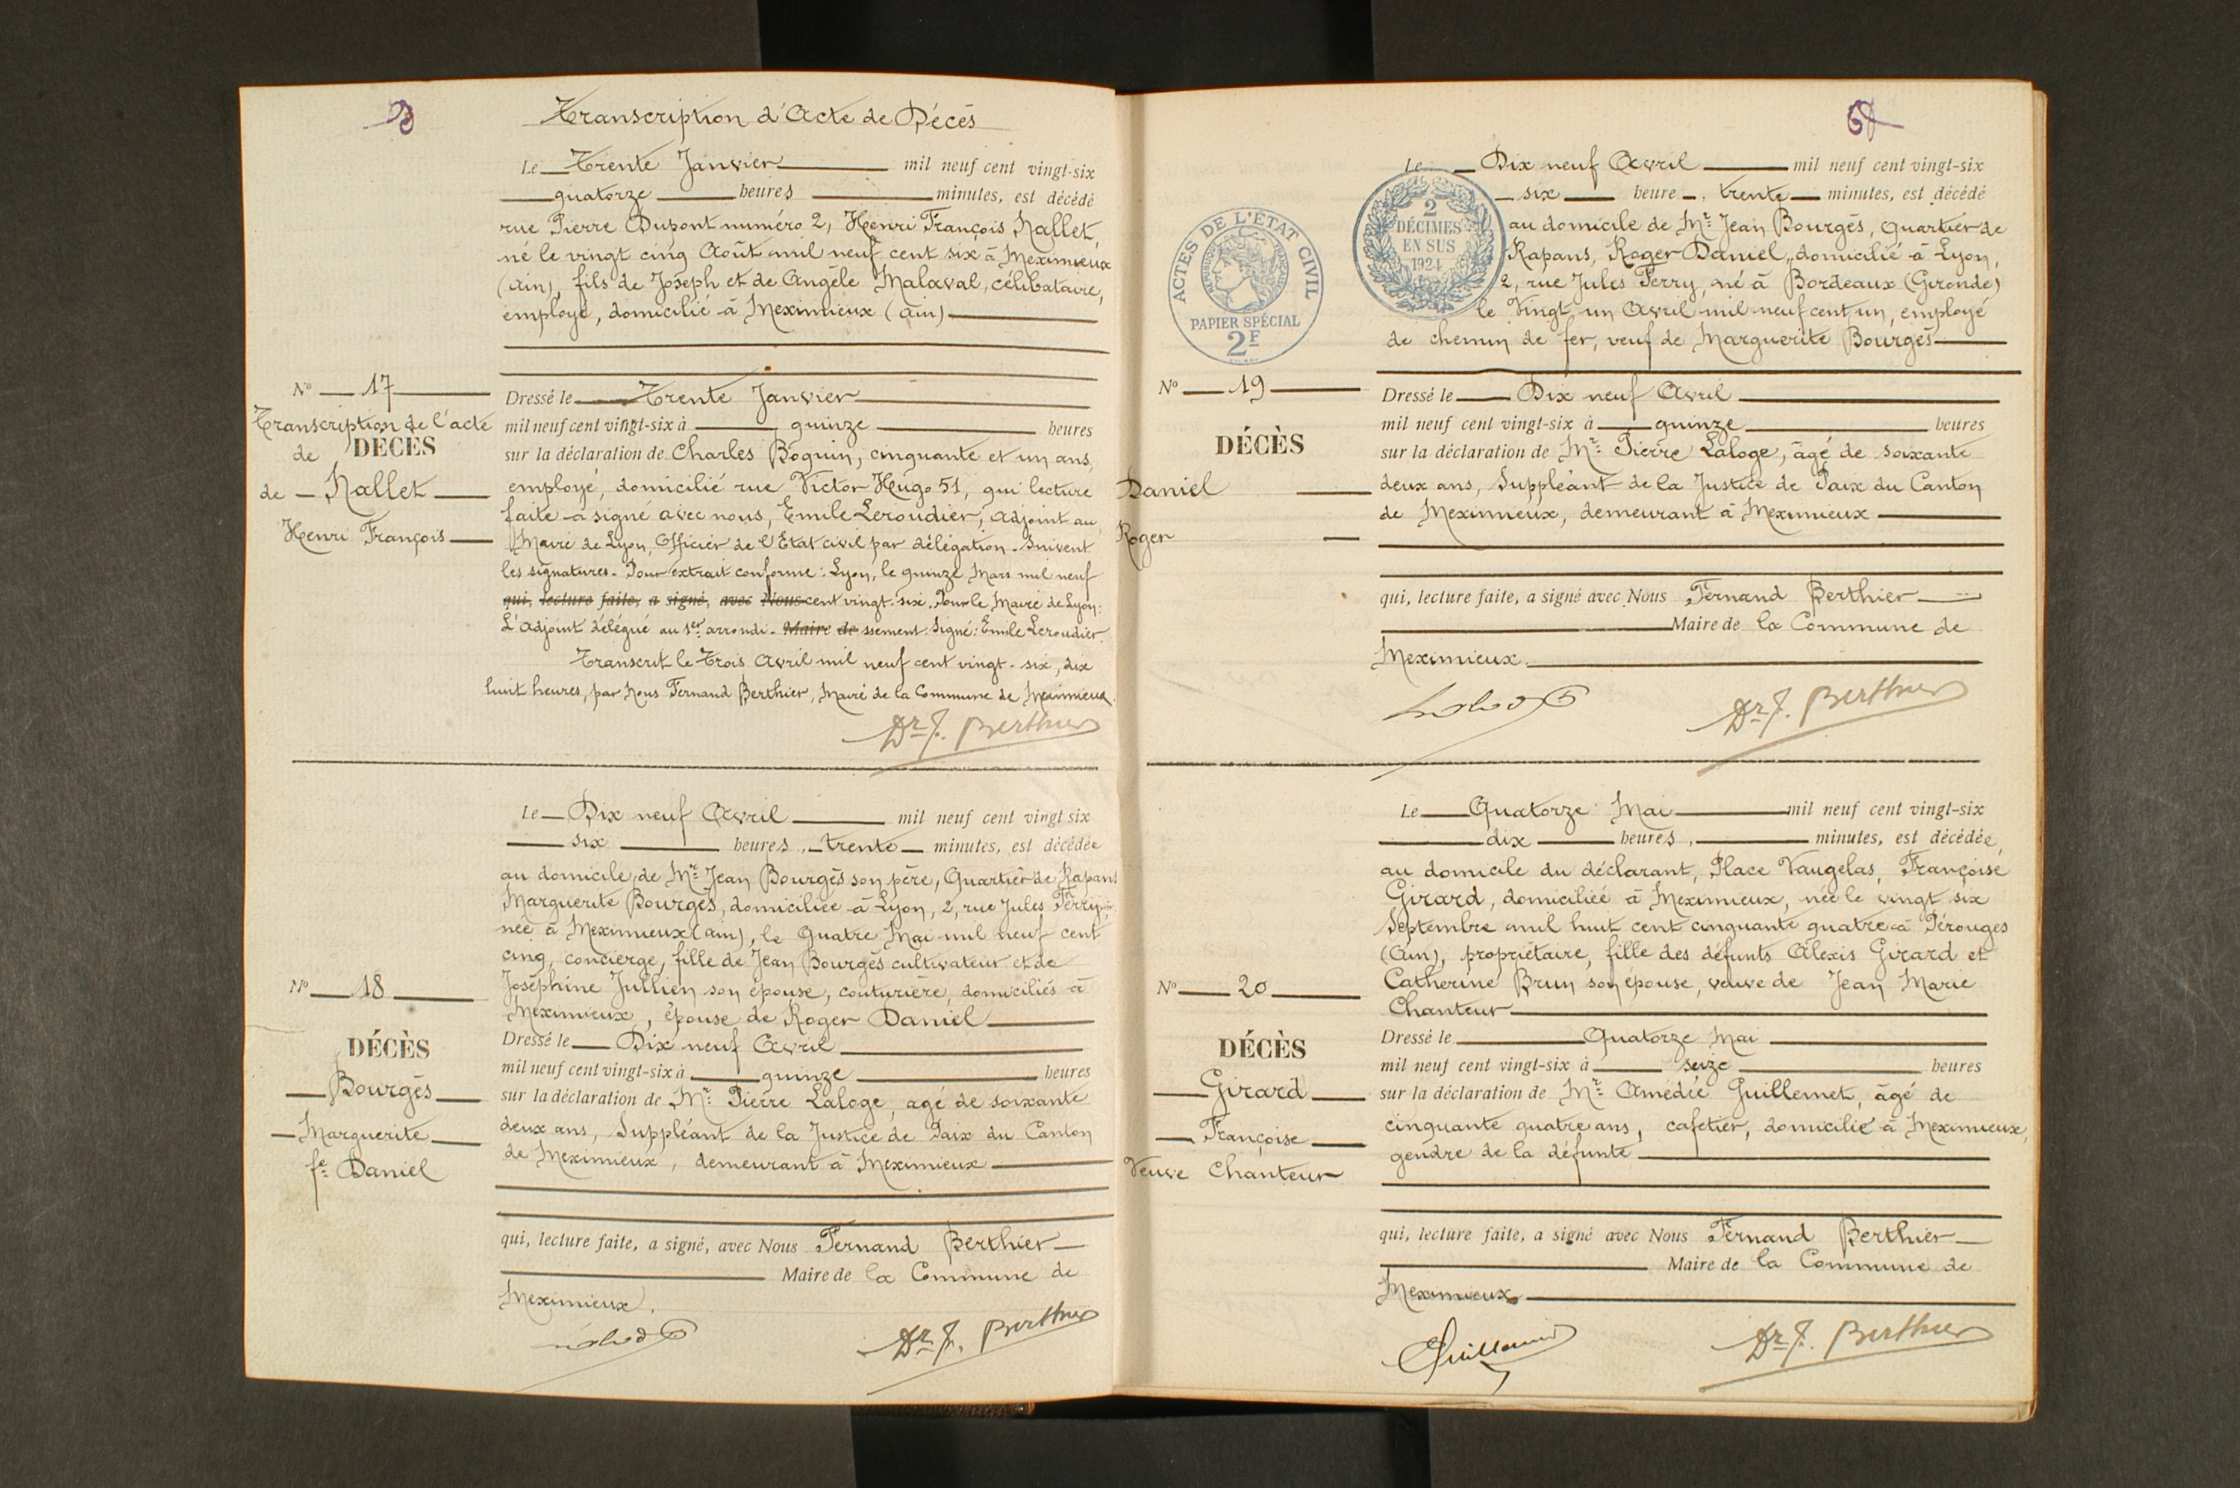 Transcription d'Acte de Décès
Le Trente Janvier mil neuf cent vingt-six
quatorze heures minutes, est décédé
rue Pierre Dupont numéro 2, Henri François Nallet,
né le vingt cinq Août mil neuf cent six à Meximieux
(Ain), fils de Joseph et de Angèle Malaval, célibataire,
employé, domicilié à Meximieux (Ain)
N° 17
Transcription de l'acte
de DÉCÈS
de Nallet
Henri François
Dressé le Trente Janvier
mil neuf cent vingt-six à quinze heures
sur la déclaration de Charles Boguin, cinquante et un ans,
employé, domicilié rue Victor Hugo 51, qui lecture
faite a signé avec nous, Emile Leroudier, Adjoint au
Maire de Lyon, Officier de l'Etat civil par délégation. Suivent
les signatures. Pour extrait conforme: Lyon, le quinze Mars mil neuf
qui, lecture faite, a signé, avec Nous cent vingt-six. Pour le Maire de Lyon:
L'Adjoint délégué au 1er arrondi- Maire de ssement: Signé: Emile Leroudier.
Transcrit le Trois Avril mil neuf cent vingt-six, dix
huit heures, par Nous Fernand Berthier, Maire de la Commune de Meximieux.
Dr F. Berthier
Le Dix neuf Avril mil neuf cent vingt six
six heures, trente minutes, est décédée
au domicile de Mr Jean Bourgès son père, Quartier de Rapans
Marguerite Bourgès, domiciliée à Lyon, 2, rue Jules Ferry
née à Meximieux (Ain), le Quatre Mai mil neuf cent
cinq, concierge, fille de Jean Bourgès cultivateur et de
Joséphine Jullien son épouse, couturière, domiciliés à
Meximieux, épouse de Roger Daniel
N° 18
DÉCÈS
Bourgès
Marguerite
fe Daniel
Dressé le Dix neuf Avril
mil neuf cent vingt-six à quinze heures
sur la déclaration de Mr Pierre Laloge, âgé de soixante
deux ans, Suppléant de la Justice de Paix du Canton
de Meximieux, demeurant à Meximieux
qui, lecture faite, a signé, avec Nous Fernand Berthier
Maire de la Commune de
Meximieux.
Dr F. Berthier
Le Dix neuf Avril mil neuf cent vingt-six
six heure, trente minutes, est décédé
au domicile de Mr Jean Bourgès, Quartier de
Rapans, Roger Daniel, domicilié à Lyon,
2, rue Jules Ferry, né à Bordeaux (Gironde)
le Vingt un Avril mil neuf cent un, employé
de chemin de fer, veuf de Marguerite Bourgès
ACTES DE L'ÉTAT CIVIL
PAPIER SPÉCIAL
2F
2
DÉCIMES
EN SUS
1924
N° 19
DÉCÈS
Daniel
Roger
Dressé le Dix neuf Avril
mil neuf cent vingt-six à quinze heures
sur la déclaration de Mr Pierre Laloge, âgé de soixante
deux ans, Suppléant de la Justice de Paix du Canton
de Meximieux, demeurant à Meximieux
qui, lecture faite, a signé avec Nous Fernand Berthier
Maire de la Commune de
Meximieux
Dr F. Berthier
Le Quatorze Mai mil neuf cent vingt-six
dix heures, minutes, est décédée,
au domicile du déclarant, Place Vaugelas, Françoise
Girard, domiciliée à Meximieux, née le vingt six
Septembre mil huit cent cinquante quatre à Pérouges
(Ain), propriétaire, fille des défunts Alexis Girard et
Catherine Brun son épouse, veuve de Jean Marie
Chanteur
N° 20
DÉCÈS
Girard
Françoise
Veuve Chanteur
Dressé le Quatorze Mai
mil neuf cent vingt-six à seize heures
sur la déclaration de Mr Amédée Guillemet, âgé de
cinquante quatre ans, cafetier, domicilié à Meximieux,
gendre de la défunte
qui, lecture faite, a signé avec Nous Fernand Berthier
Maire de la Commune de
Meximieux
Dr F. Berthier